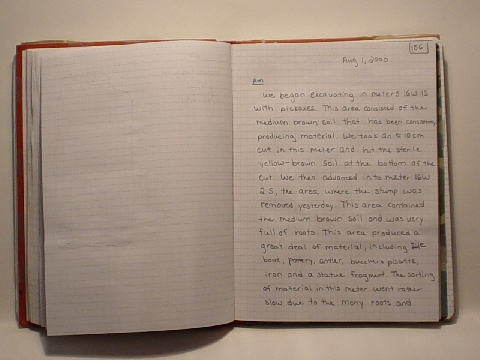 156
Aug 1, 2000
pm
We began excavating in meters 16W 1S
with pickaxes. This area consisted of the
medium brown soil that has been consistently
producing material. We took an ≈ 10cm
cut in this meter and hit the sterile
yellow-brown soil at the bottom of the
cut. We then advanced into meter 16W
2S, the area where the stump was
removed yesterday. This area contained
the medium brown soil and was very
full of roots. This area produced a
great deal of material, including tile
bone, pottery, antler, bucchero pisante,
iron and a statue fragment. The sorting
of material in this meter went rather
slow due to the many roots and